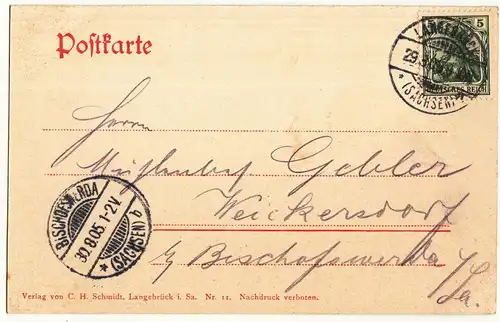 Postkarte
5
LANGEBRÜCK
29.8.
(SACHSEN)
DEUTSCHES REICH
Herrn
Gebler
Weickersdorf
b/ Bischofswerda
i/Sa.
BISCHOFSWERDA
30.8.05.1-2V.
* (SACHSEN) b
Verlag von C. H. Schmidt, Langebrück i. Sa. Nr. 11. Nachdruck verboten.